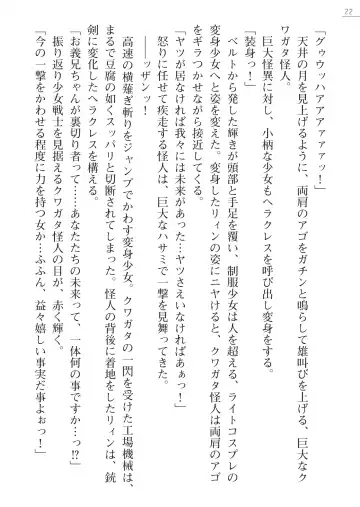 22
「グゥウッハアアアアァァァッ！」
天井の月を見上げるように、両肩のアゴをガチンと鳴らして雄叫びを上げる、巨大なク
ワガタ怪人。
巨大怪異に対し、小柄な少女もヘラクレスを呼び出し変身をする。
「装身っ！」
ベルトから発した輝きが頭部と手足を覆い、制服少女は人を超える、ライトコスプレの
変身少女へと姿を変えた。変身したリィンの姿にニヤけると、クワガタ怪人は両肩のアゴ
をギラつかせながら接近してくる。
「ヤツが居なければ我々には未来があった…ヤツさえいなければあぁっ！」
怒りに任せて疾走する怪人は、巨大なハサミで一撃を見舞ってきた。
――ッザンッ！
高速の横薙ぎ斬りをジャンプでかわす変身少女。クワガタの一閃を受けた工場機械は、
まるで豆腐の如くスッパリと切断されてしまう。怪人の背後に着地をしたリィンは、銃
剣に変化したヘラクレスを構える。
「お義兄ちゃんが裏切り者って……あなたたちの未来って、一体何の事ですかっ!?」
振り返り少女戦士を見据えるクワガタ怪人の目が、赤く輝く。
「今の一撃をかわせる程度に力を持つ女か…ふふん、益々嬉しい事実だ事よぉっ！」